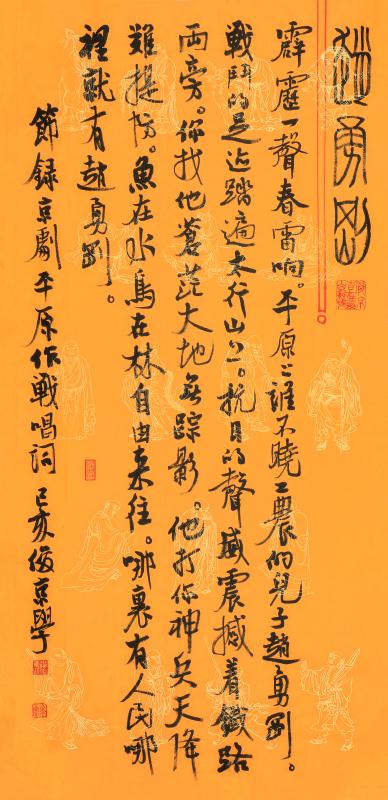 趙勇剛
霹靂一聲春雷响。平原上誰不曉工農的兒子趙勇剛。
戰鬥的足迹踏遍太行山上。抗日的聲威震撼着鐵路
両旁。你找他蒼茫大地無踪影。他打你神兵天降
難提防。魚在水鳥在林自由来往。哪裏有人民哪
裡就有趙勇剛。
節録京劇平原作戰唱詞 己亥俊京學